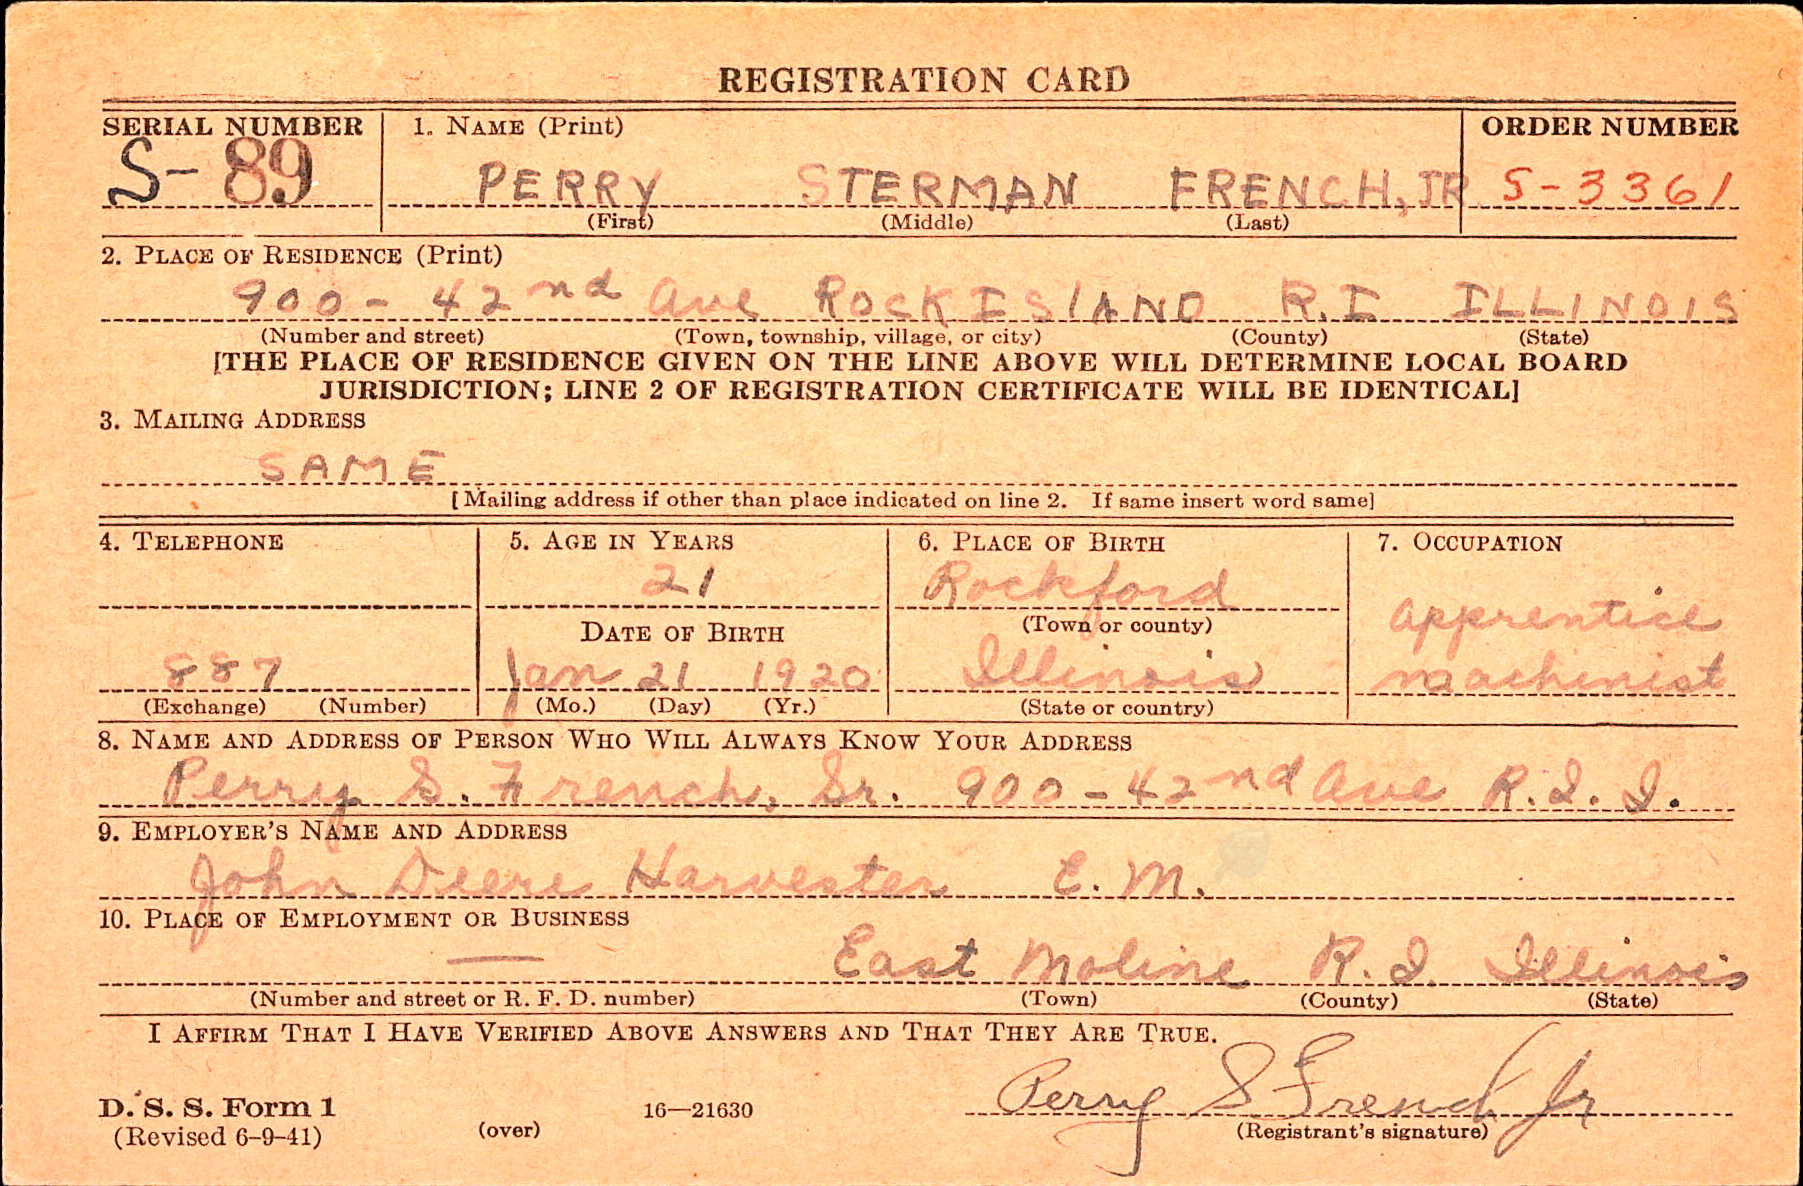 REGISTRATION CARD
SERIAL NUMBER 1. NAME (Print) ORDER NUMBER
S- 89 PERRY STERMAN FRENCH, JR S-3361
(First) (Middle) (Last)
2. PLACE OF RESIDENCE (Print)
900 - 42nd Ave ROCK ISlAND R.I ILLINOIS
(Number and street) (Town, township, village, or city) (County) (State)
[THE PLACE OF RESIDENCE GIVEN ON THE LINE ABOVE WILL DETERMINE LOCAL BOARD
JURISDICTION; LINE 2 OF REGISTRATION CERTIFICATE WILL BE IDENTICAL]
3. MAILING ADDRESS
SAME
[Mailing address if other than place indicated on line 2. If same insert word same]
4. TELEPHONE 5. AGE IN YEARS 6. PLACE OF BIRTH 7. OCCUPATION
21 Rockford apprentice
DATE OF BIRTH (Town or county)
887 Jan 21 1920 Illinois machinist
(Exchange) (Number) (Mo.) (Day) (Yr.) (State or country)
8. NAME AND ADDRESS OF PERSON WHO WILL ALWAYS KNOW YOUR ADDRESS
Perry S. French, Sr. 900 - 42nd Ave R. I. I.
9. EMPLOYER'S NAME AND ADDRESS
John Deere Harvester E. M.
10. PLACE OF EMPLOYMENT OR BUSINESS
— East Moline R. I. Illinois
(Number and street or R. F. D. number) (Town) (County) (State)
I AFFIRM THAT I HAVE VERIFIED ABOVE ANSWERS AND THAT THEY ARE TRUE.
Perry S French Jr
D. S. S. Form 1 16—21630
(Revised 6-9-41) (over) (Registrant's signature)